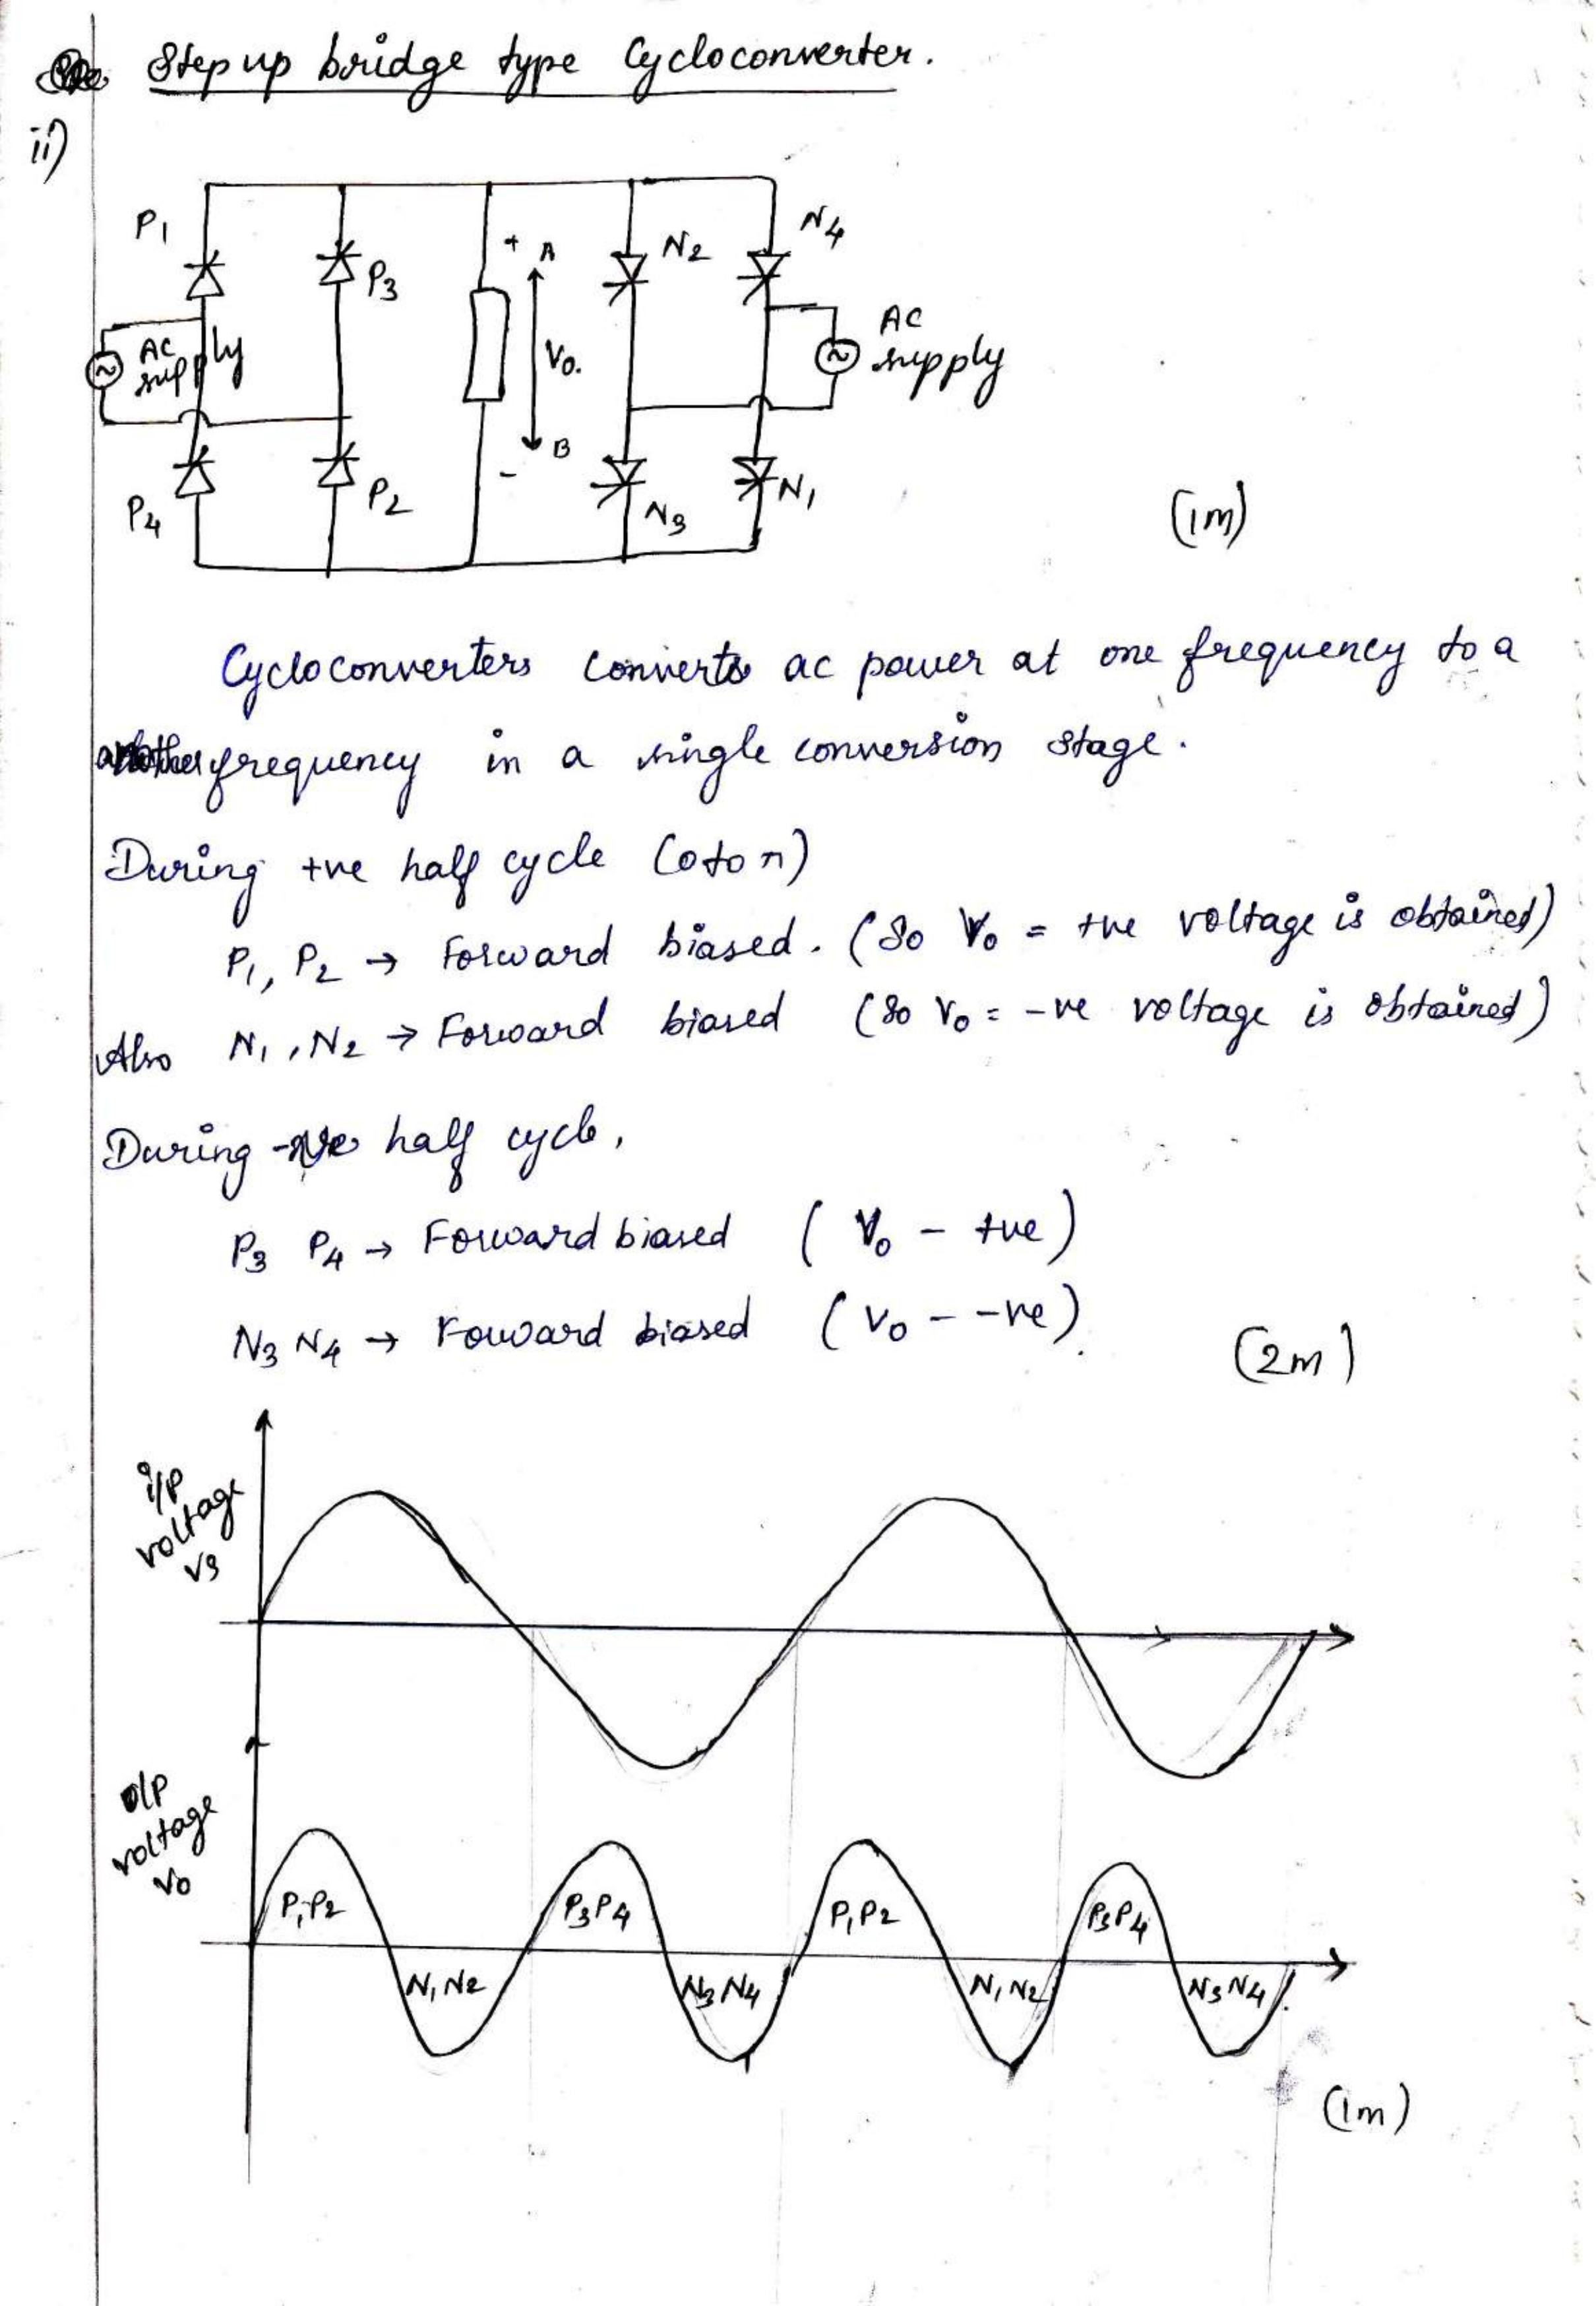 Step up bridge type Cycloconverter.
ii)
P1
P3
N2
N4
+ A
AC supply
Vo.
AC supply
B
-
P4
P2
N3
N1
(1m)
Cycloconverters converts ac power at one frequency to a
another frequency in a single conversion stage.
During +ve half cycle (0 to π)
P1, P2 → Forward biased. (So Vo = +ve voltage is obtained)
Also N1, N2 → Forward biased (So Vo = -ve voltage is obtained)
During -ve half cycle,
P3 P4 → Forward biased (Vo - +ve)
N3 N4 → Forward biased (Vo - -ve).
(2m)
i/P
voltage
vs
o/P
voltage
vo
P1P2
P3P4
P1P2
P3P4
N1N2
N3N4
N1N2
N3N4
(1m)